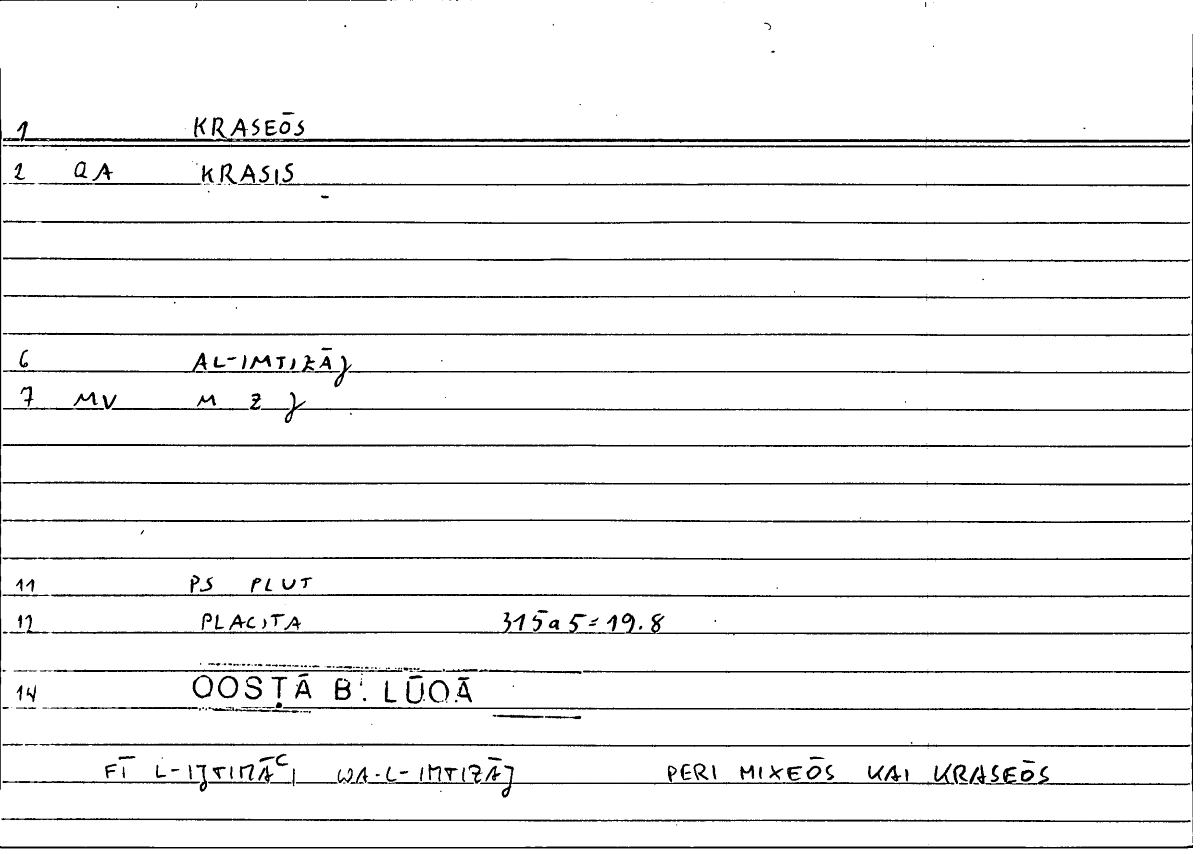 1 KRASEŌS
2 QA KRASIS
6 AL-IMTIZĀJ
7 MV M Z J
11 PS PLUT
12 PLACITA 315a5=19.8
14 QOSṬĀ B. LŪQĀ
FĪ L-IJTIMĀʿI WA-L-IMTIZĀJ PERI MIXEŌS KAI KRASEŌS